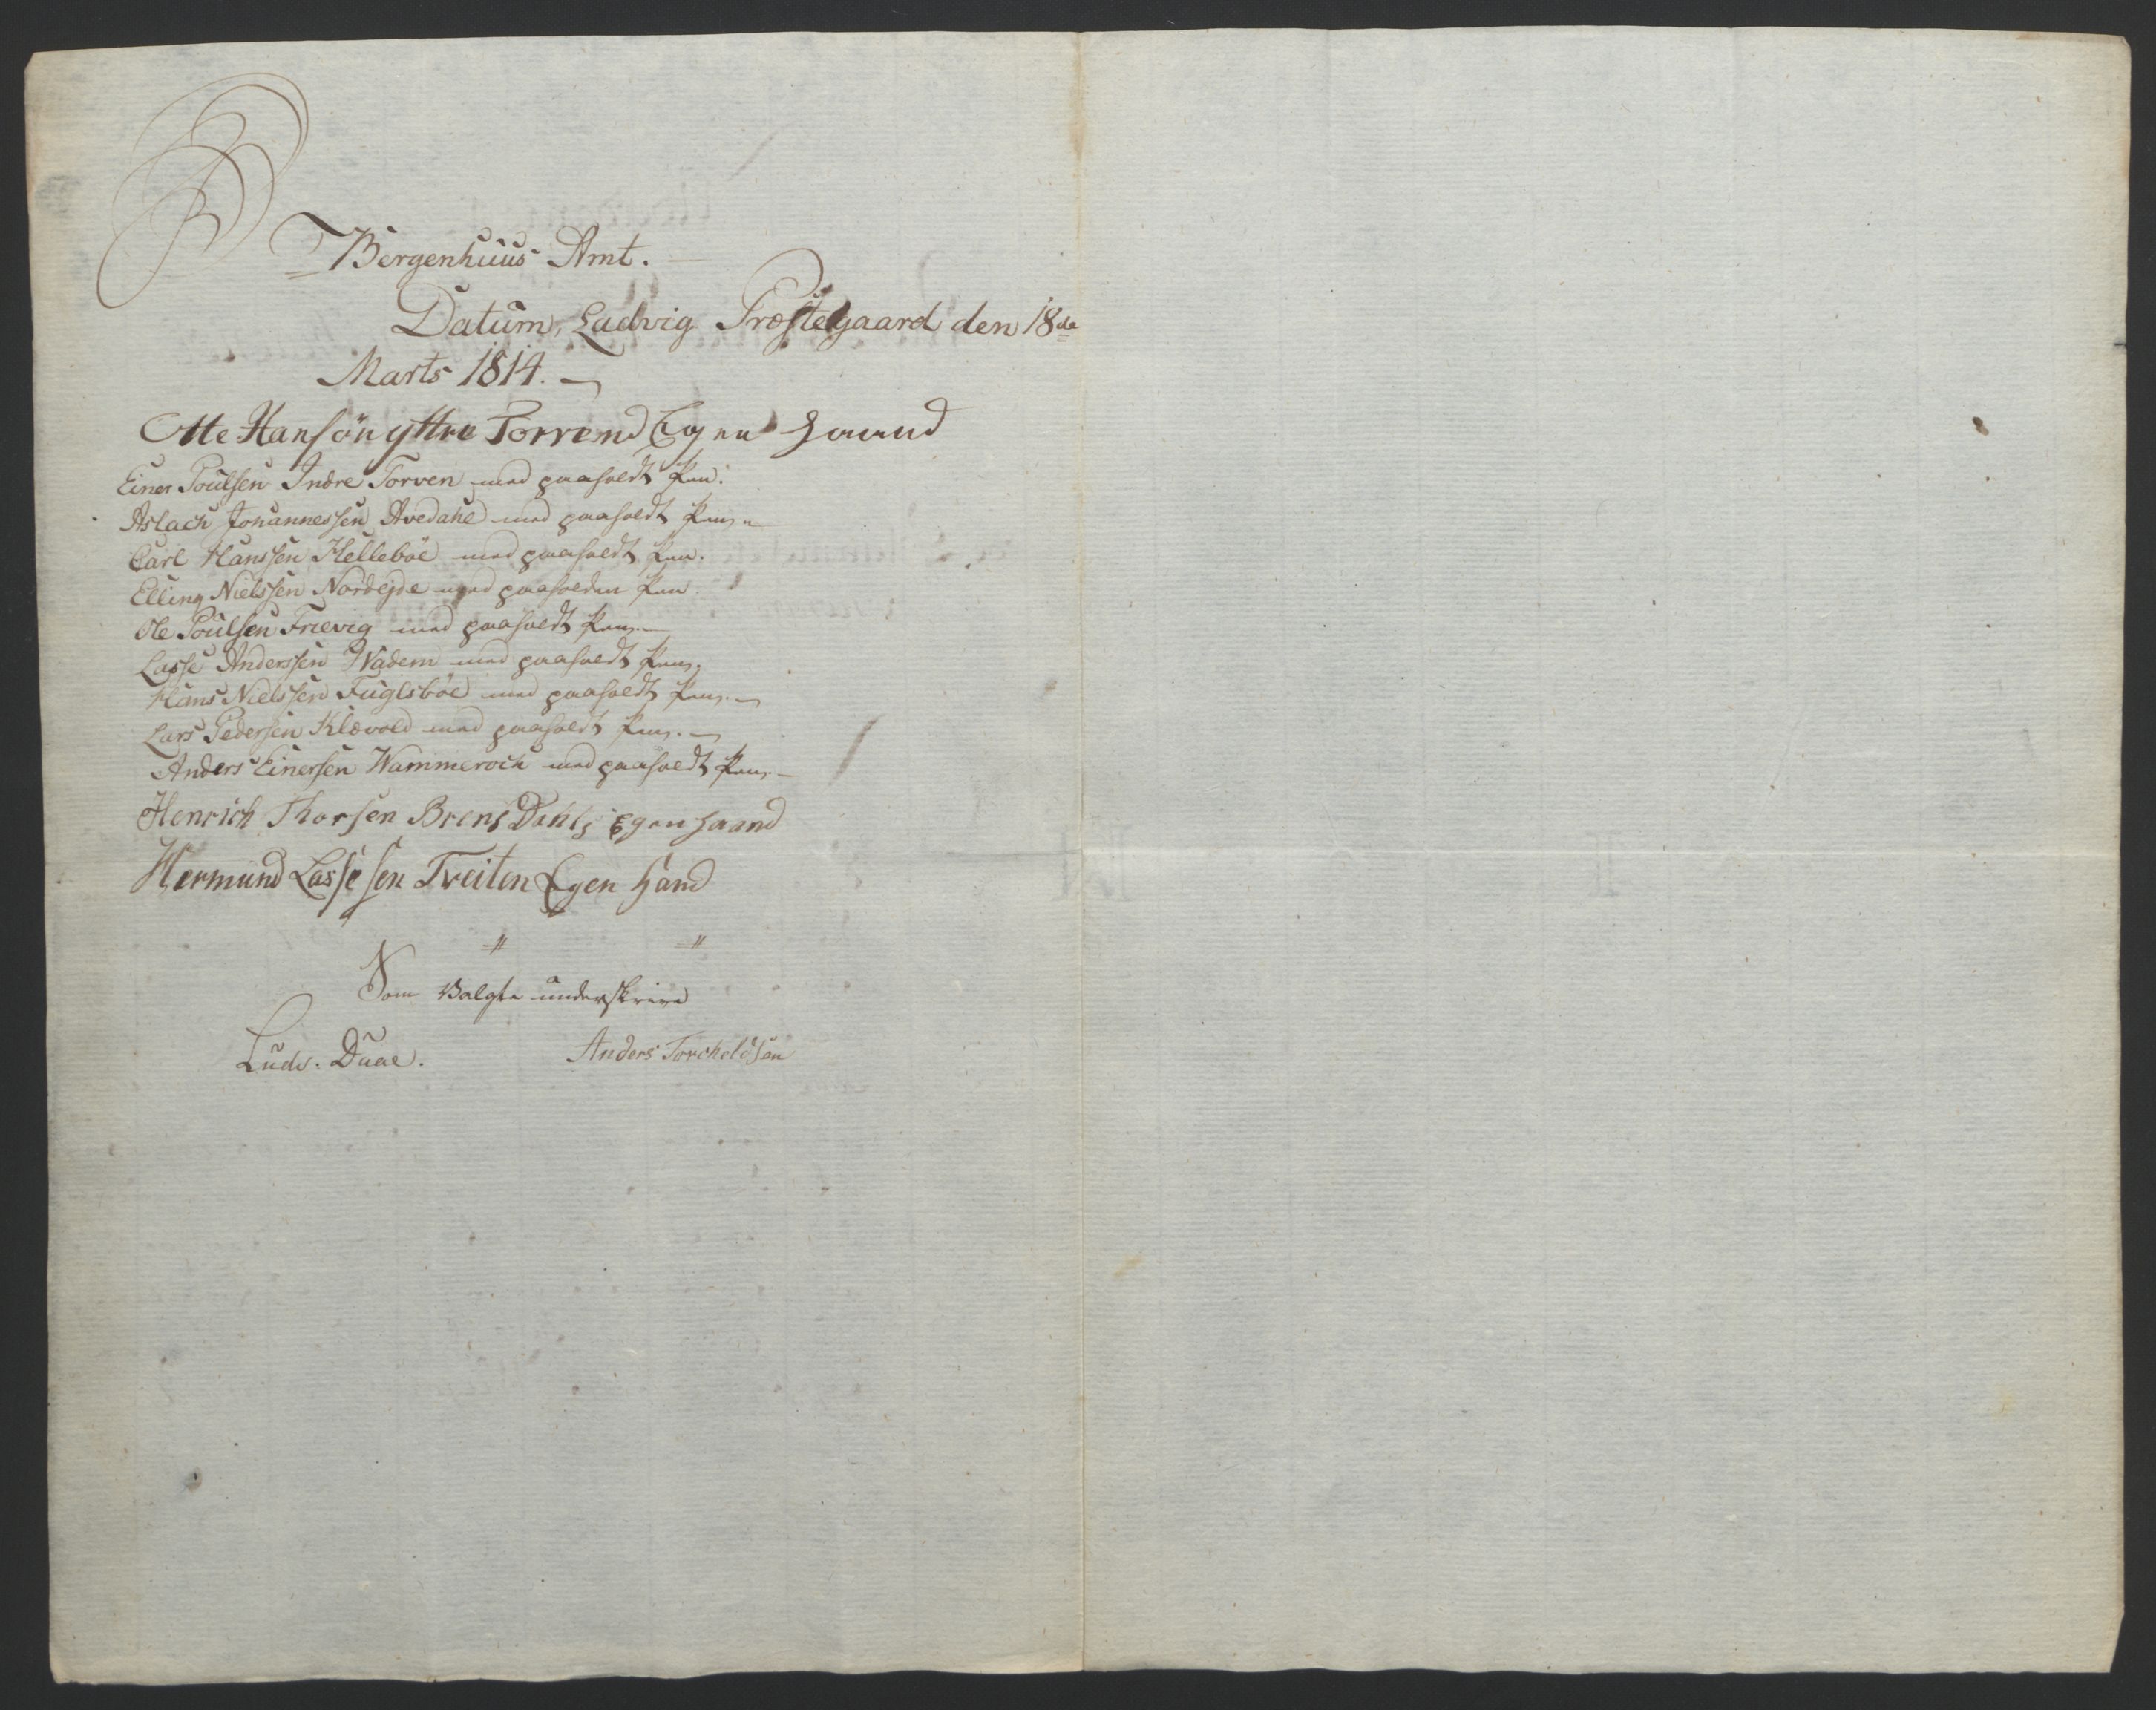 Bergenhuus Amt. —
Datum, Ladvig Præstegaard den 18de
Marts 1814. —
Otte Hansön yttre Torven Egen Haand
Einer Poulsen Indre Torven med paaholdt Pen.
Aslach Johannessen Avedahl med paaholdt Pen.
Carl Hanssen Hellebøe med paaholdt Pen.
Elling Nielssen Nordejde med paaholden Pen
Ole Poulsen Frievig med paaholdt Pen. —
Lasse Anderssen Wadem med paaholdt Pen.
Hans Nielssen Fuglsbøe med paaholdt Pen. —
Lars Pedersen Klævold med paaholdt Pen. —
Anders Einersen Wammeroch med paaholdt Pen. —
Henrich Thorsen Brensdahl Egen haand
Hermund Lassesen Treiten Egen Hand
〃 〃
Som Valgte underskrive
Ludv. Daae. Anders Torcheldsen